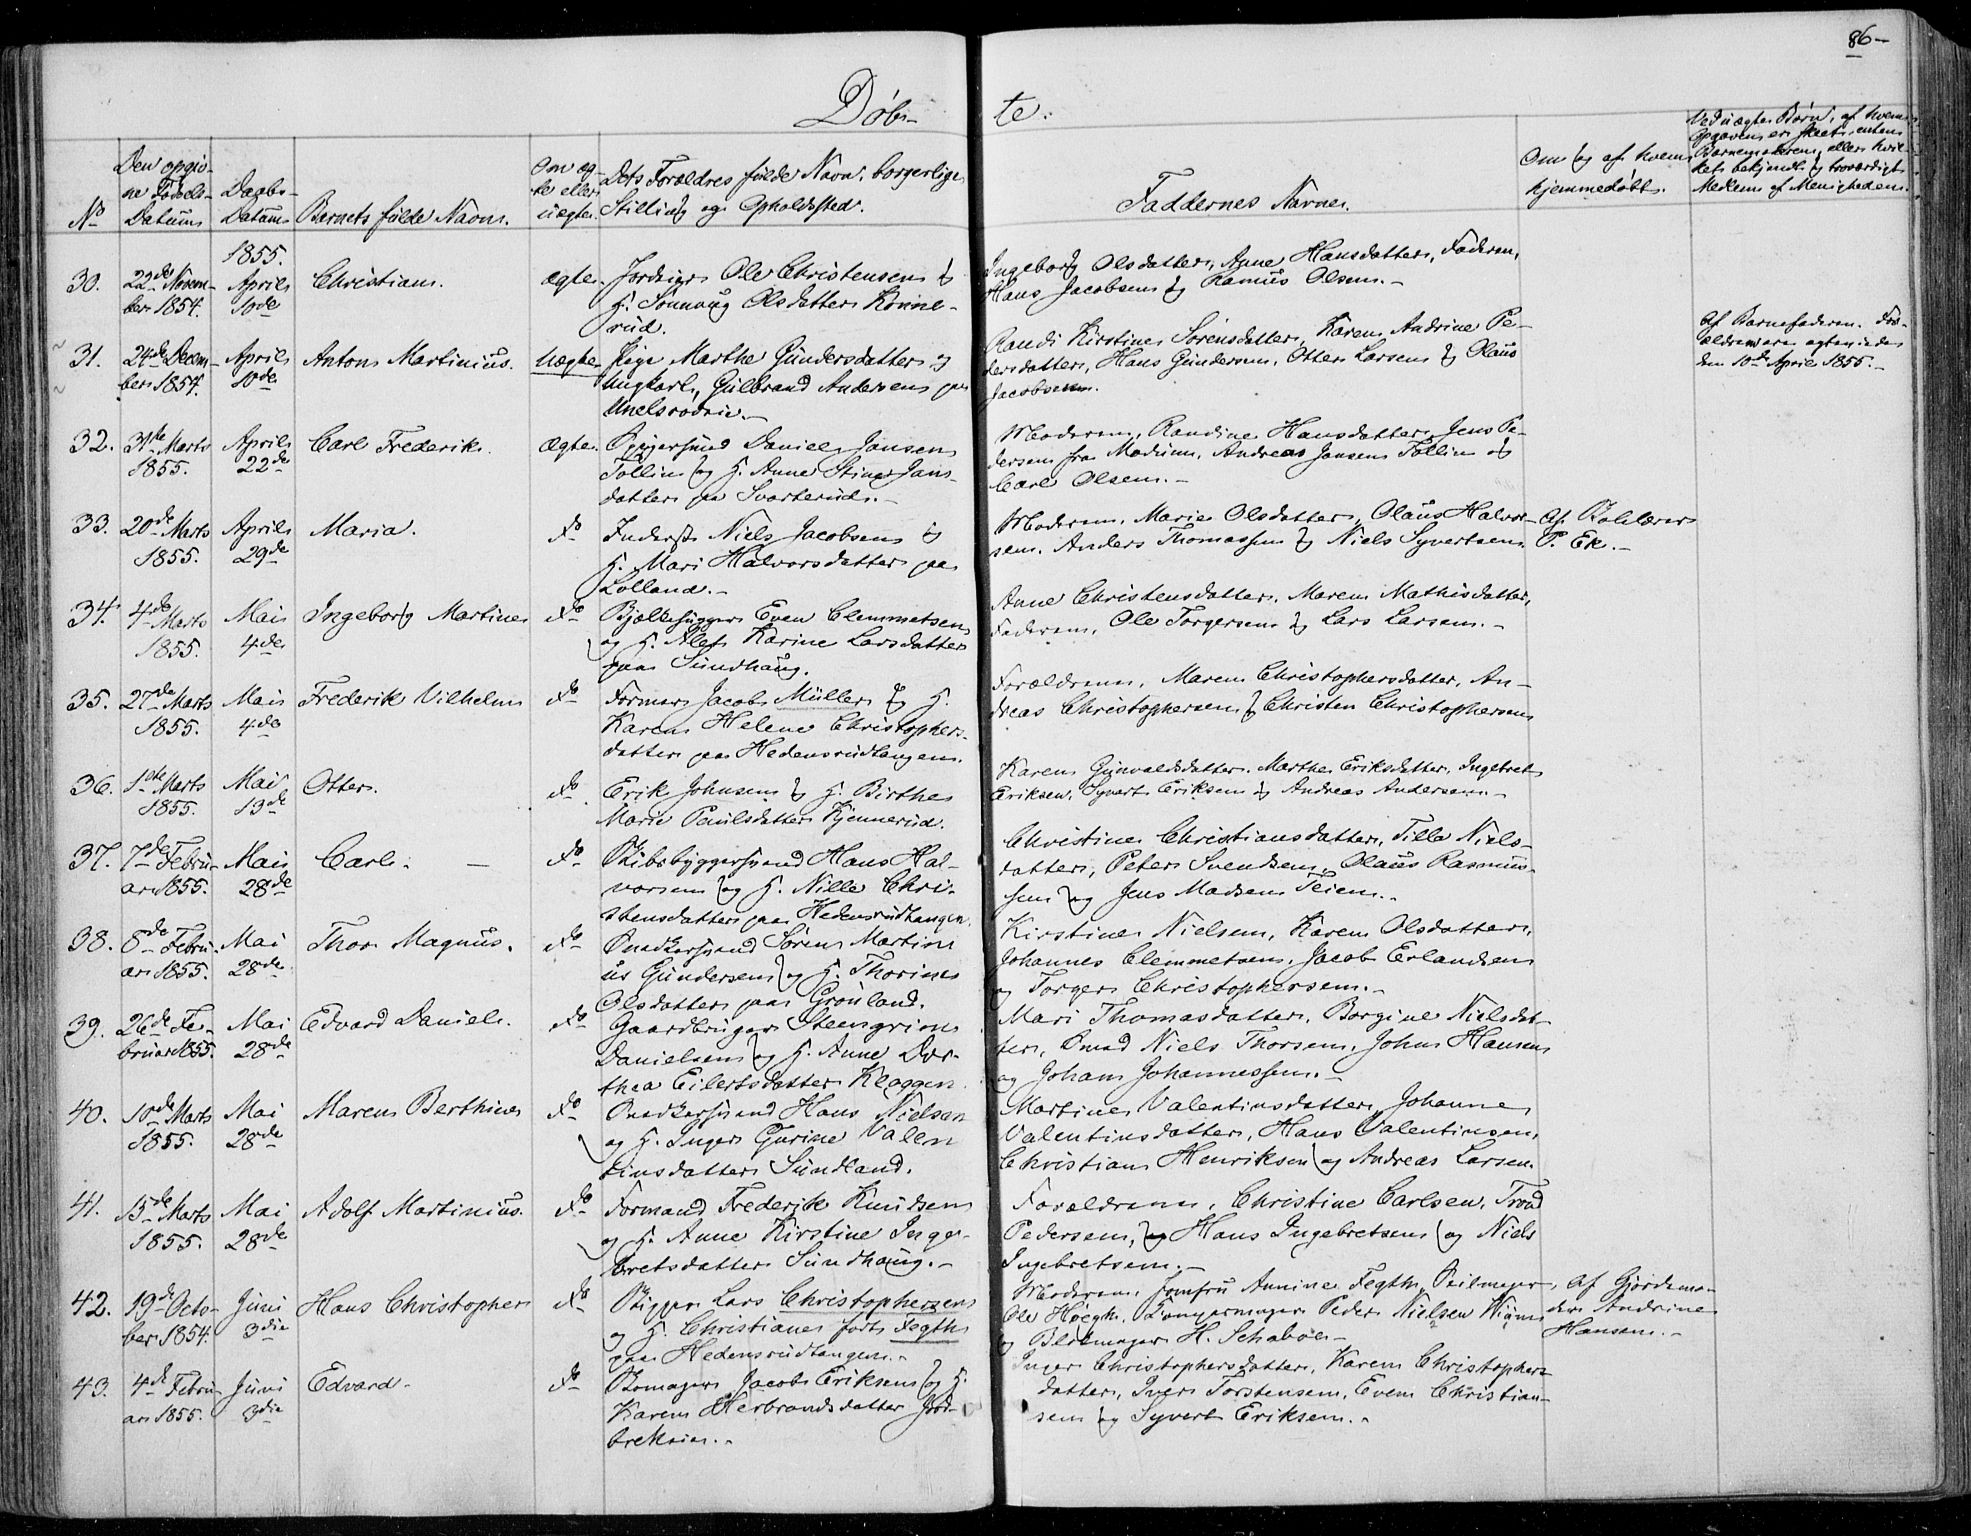 86-
Døb-
te.
Den opgiv-
ne Fødsels-
Datum
Daabs-
Datum
Barnets fulde Navn.
Om æg-
te eller
uægte.
Dets Forældres fulde Navn, borgerlige
Stilling og Opholdssted.
Faddernes Navne.
Om og af hvem
hjemmedøbt.
Ved uægte Børn, af hvem
Opgaven er skeet, enten
Barnemoderen, eller hvil-
ket bekjendt og troværdigt
Medlem af Menigheden.
No
1855.
30. 22de Novem-
ber 1854.
April
10de
Christian.
ægte.
Jordeier Ole Christensen og
H.
Olsdatter Konne-
rud.
Ingeborg Olsdatter, Anne Hansdatter, Faderen,
Hans Jacobsen og Rasmus Olsen.-
31. 24de Decem-
ber 1854.
April
10de
Anton Martinius.
Uægte
Pige Marthe Gundersdatter og
Ungkarl, Gulbrand Andersen paa
Randi Kirstine Sørensdatter, Karen Andrine Pe-
dersdatter, Hans Gundersen, Otter Larsen og Olaus
Jacobsen.
Af Barnefaderen. For-
ældrene ere ægteviede
den 10de April 1855.-
32. 31te Marts
1855.
April
22de
Carl Frederik.
ægte.
Daniel Jansen
Tollin og H. Anne Stine Jans-
datter paa Svarterud.-
Moderen, Randine Hansdatter, Jens Pe-
dersen fra Modum, Andreas Jansen Tollin og
Carl Olsen.-
33. 20de Marts
1855.
April
29de
Maria.
do
Inderst Niels Jacobsen og
H. Mari Halvorsdatter paa
Lolland.-
Moderen, Marie Olsdatter, Olaus Halvor-
sen. Anders Thomassen og Niels Syvertsen.
Af
P. Ek.-
34. 4de Marts
1855.
Mai
4de
Ingeborg Martine
do
Bjælkehugger Even Clemmetsen
og H. Alet Karine Larsdatter
paa Sundhaug.
Anne Christensdatter, Maren Mathisdatter,
Faderen, Ole Torgersen og Lars Larsen.-
35. 27de Marts
1855.
Mai
4de
Frederik Vilhelm
do
Former Jacob Müller og H.
Karen Helene Christophers-
datter paa Hedensrudtangen.
Forældrene, Maren Christophersdatter, An-
dreas Christophersen og Christen Christophersen
36. 1ste Marts
1855.
Mai
13de
Otter.
do
Erik Johnsen og H. Birthe
Marie Paulsdatter Kjennerud.
Karen Gunvaldsdatter. Marthe Eriksdatter, Ingebret
Eriksen, Syvert Eriksen og Andreas Andersen.-
37. 7de Febru-
ar 1855.
Mai
28de
Carl. -
do
Skibsbyggersvend Hans Hal-
vorsen og H. Nille Chri-
stensdatter paa Hedensrudtangen.
Christine Christiansdatter, Tilla Niels-
datter, Peter Svendsen, Olaus Rasmus-
sen og Jens Madsen Teien.-
38. 8de Febru-
ar 1855.
Mai
28de
Thor Magnus.
do
Snedkersvend Søren Martini
us Gundersen og H. Thorine
Olsdatter paa Grønland.
Kirstine Nielsen, Karen Olsdatter,
Johannes Clemmetsen, Jacob Erlandsen
og Torger Christophersen.-
39. 26de Fe-
bruar 1855.
Mai
28de
Edvard Daniel.
do
Gaardbruger Steengrim
Danielsen og H. Anne Dor-
thea Eilertsdatter Kloggen
Mari Thomasdatter, Borgine Nielsdat-
ter, Smed Niels Thorsen, John Hansen
og Johan Johannessen.-
40. 10de Marts
1855.
Mai
28de
Maren Berthine
do
Snedkersvend Hans Nielsen
og H. Inger Gurine Valen
tinsdatter Sundland.
Martine Valentinsdatter, Johanne
Valentinsdatter, Hans Valentinsen,
Christian Henriksen og Andreas Larsen.
41. 15de Marts
1855.
Mai
28de
Adolf Martinius.
do
Formand Frederik Knudsen
og H. Anne Kirstine Inge-
bretsdatter Sundhaug.-
Forældrene, Christine Carlsen, Trond
Pedersen, og Hans Ingebretsen og Niels
Ingebretsen.-
42. 19de Octo-
ber 1854.
Juni
3die
Hans Christopher
do
Skipper Lars Christophersen
og H. Christiane født Fegth
paa Hedensrudtangen.-
Moderen, Jomfru Annine Fegth, Seilmager
Ole Høegh, Pompemager Peder Nielsen Wiuns
og Blokmager H. Schabo.-
Af Gjordemo-
der Andrine
Hansen.-
43. 4de Febru-
ar 1855.
Juni
3die
Edvard.
do
Skomager Jacob Eriksen og H.
Karen Herbrandsdatter Jord-
Inger Christophersdatter, Karen Christophers-
datter, Iver Torstensen, Even Christian-
sen og Syvert Eriksen.-